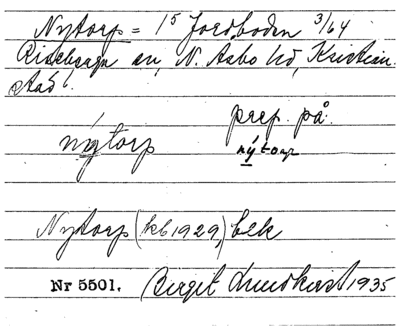 Nytorp = 1⁵ Jordboden 3/64
Riseberga sn, N. Åsbo hd, Kristian-
stads l.
prep. på
nýtorp nýtorp
Nytorp (kb 1929,) bek
Nr 5501. Birgit Lundkvist 1935